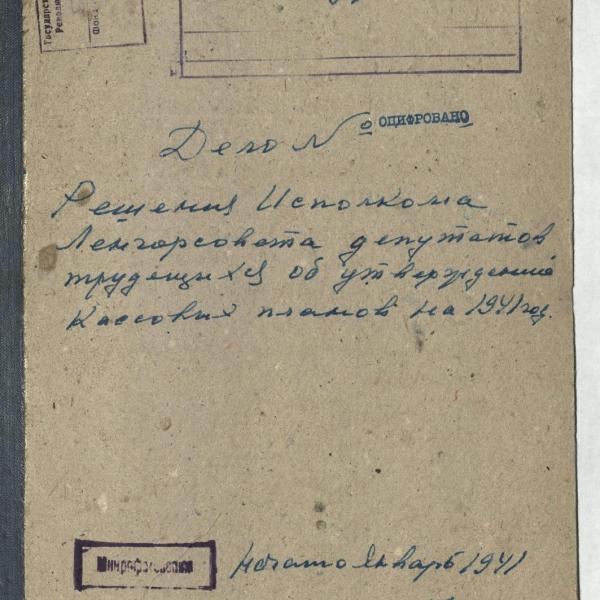 Государс
Револ
Фонд
Дело №
ОЦИФРОВАНО
Решения Исполкома
Ленгорсовета депутатов
трудящихся об утверждении
Кассовых планов на 1941 год.
Микрофотокопия
начато Январь 1941